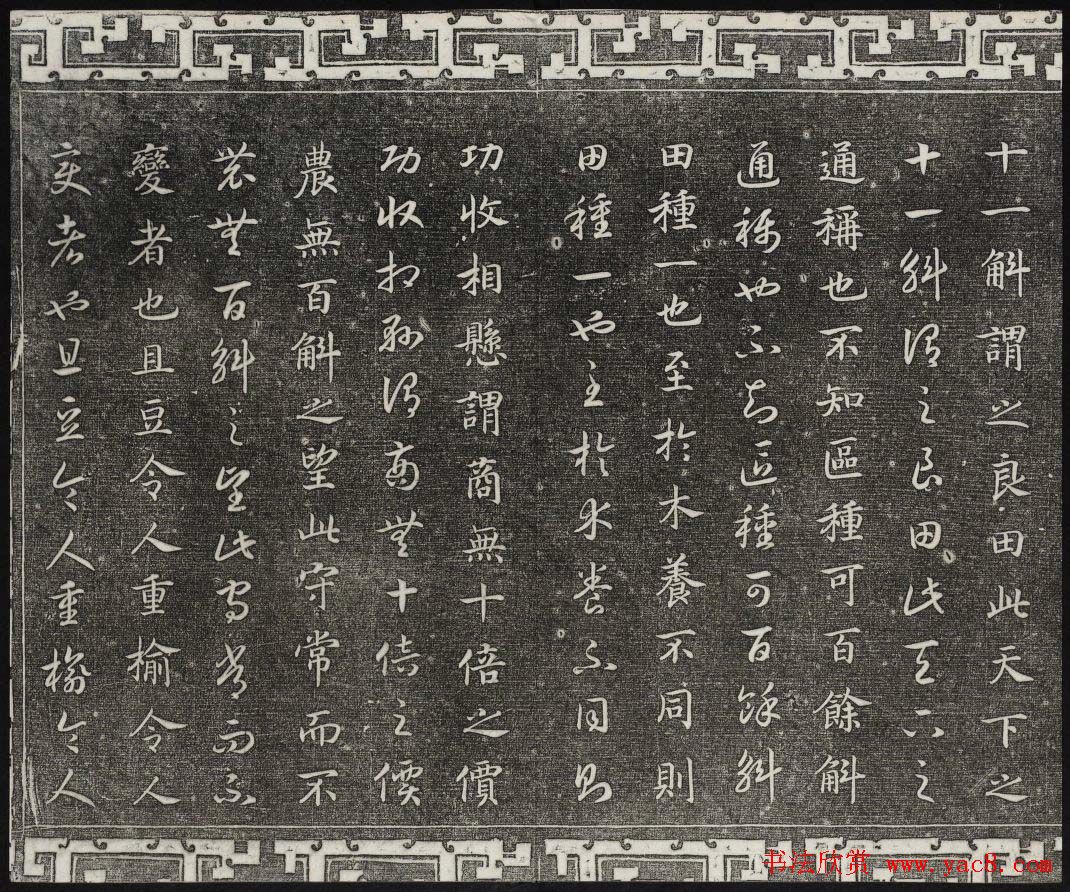 十一斛謂之良田此天下之
十一斛謂之良田此天下之
通稱也不知區種可百餘斛
通稱也不知區種可百餘斛
田種一也至於木養不同則
田種一也至於木養不同則
功收相懸謂商無十倍之價
功收相懸謂商無十倍之價
農無百斛之望此守常而不
農無百斛之望此守常而不
變者也且豆令人重榆令人
變者也且豆令人重榆令人
书法欣赏 www.yac8.com